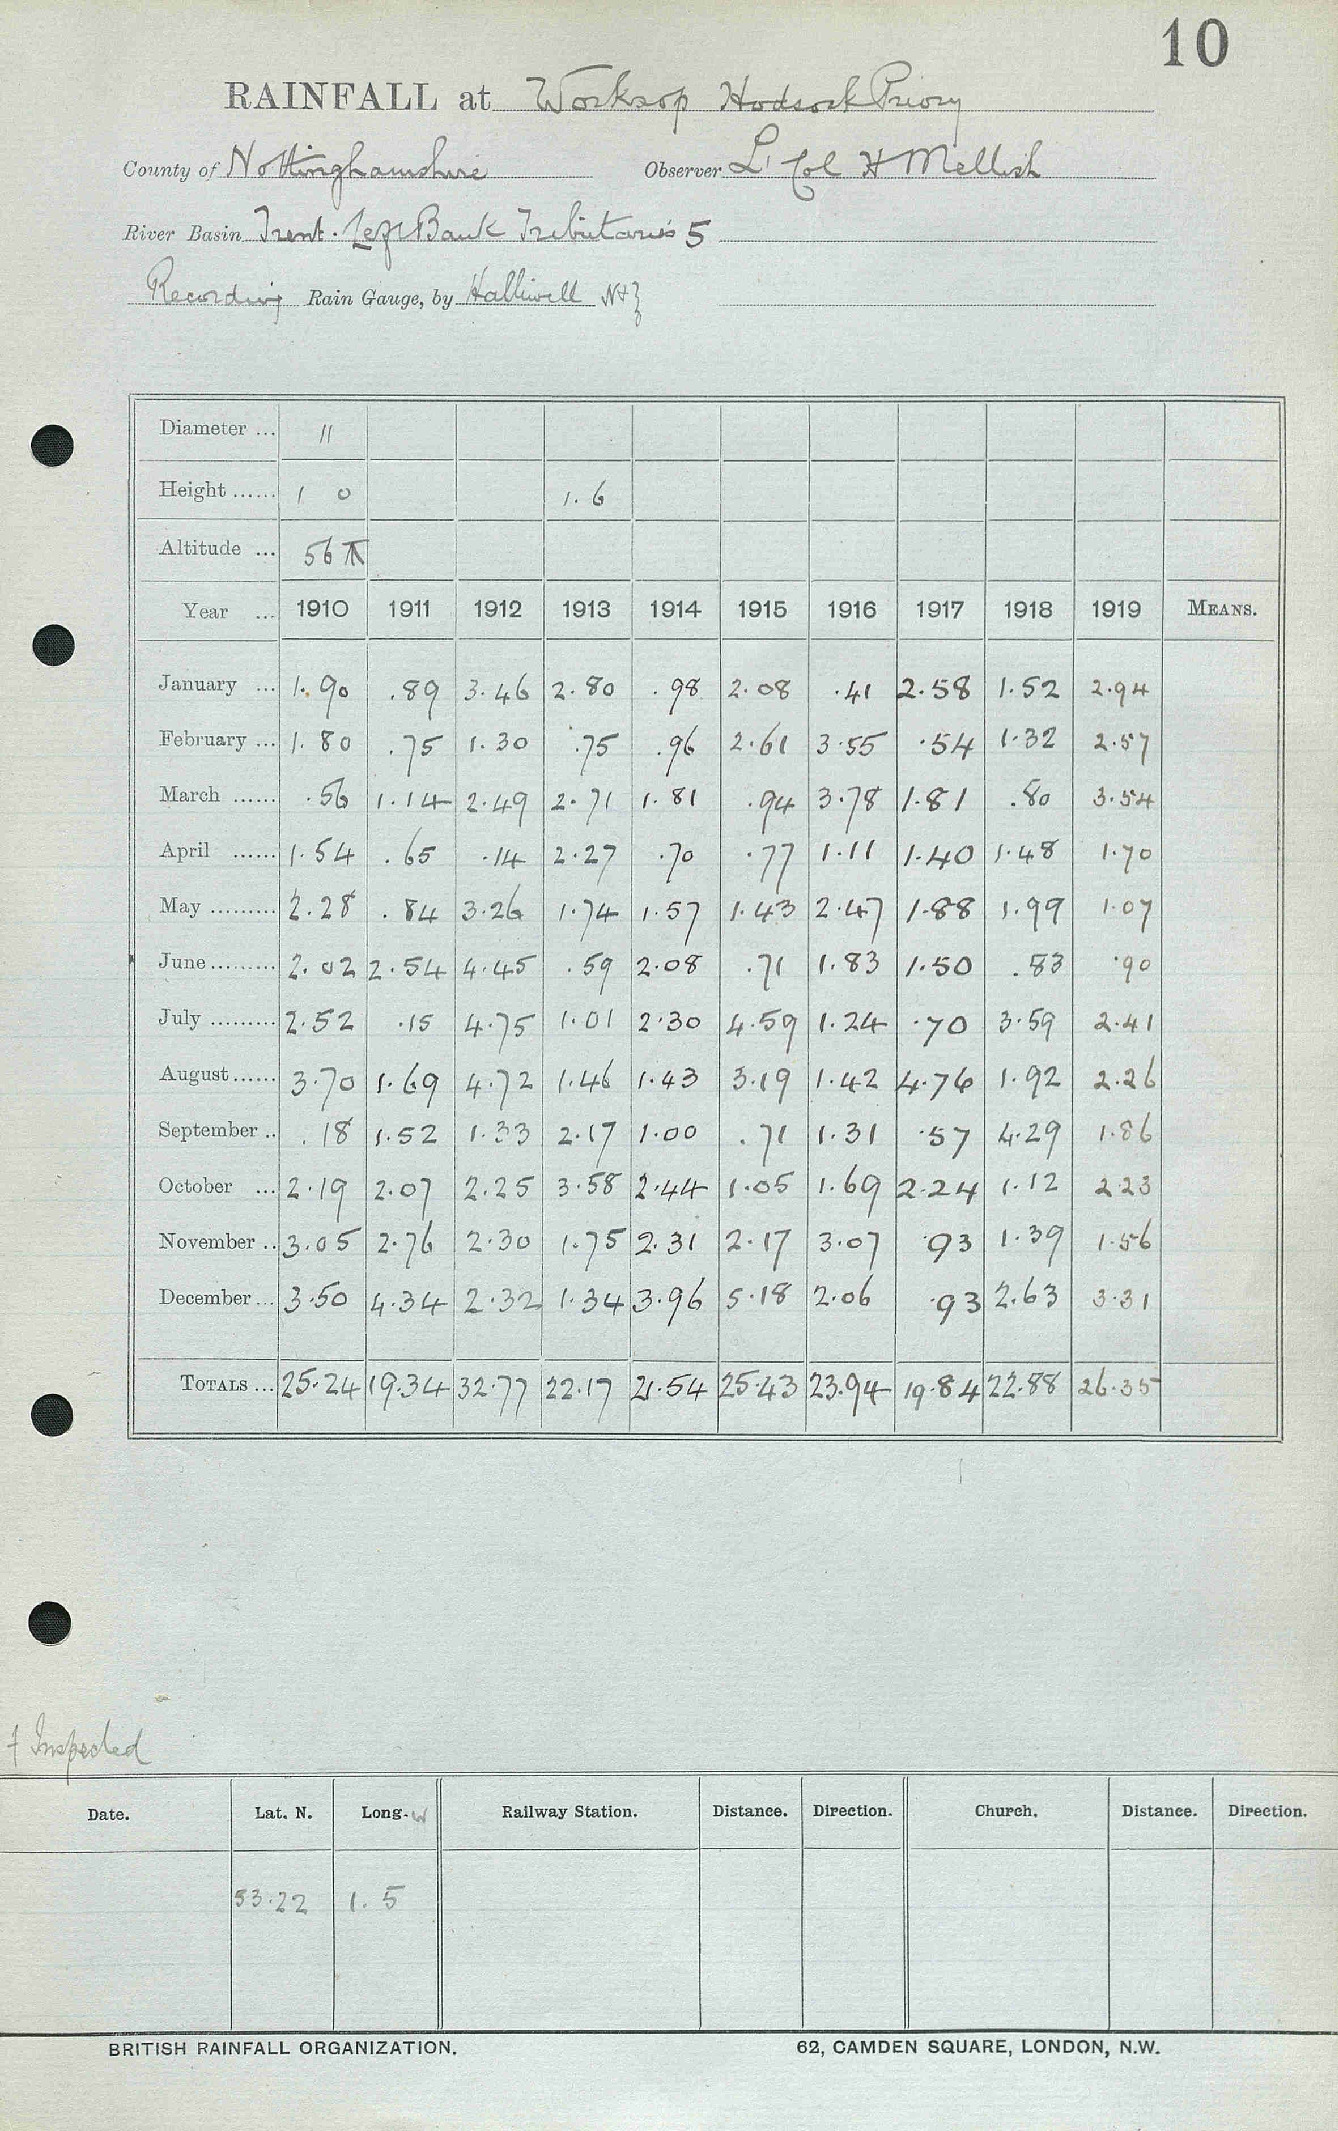 10
RAINFALL at Worksop Hodsock Priory
County of Nottinghamshire Observer Lt Col H Mellish
River Basin Trent. Left Bank Tributaries 5
Recording Rain Gauge, by Halliwell
Diameter ... 11
Height ...... 1 0 1.6
Altitude ... 56
Year ... 1910 1911 1912 1913 1914 1915 1916 1917 1918 1919 MEANS.
January ... 1.90 .89 3.46 2.80 .98 2.08 .41 2.58 1.52 2.94
February ... 1.80 .75 1.30 .75 .96 2.61 3.55 .54 1.32 2.57
March ...... .56 1.14 2.49 2.71 1.81 .94 3.78 1.81 .80 3.54
April ...... 1.54 .65 .14 2.27 .70 .77 1.11 1.40 1.48 1.70
May ......... 2.28 .84 3.26 1.74 1.57 1.43 2.47 1.88 1.99 1.07
June ......... 2.02 2.54 4.45 .59 2.08 .71 1.83 1.50 .83 .90
July ......... 2.52 .15 4.75 1.01 2.30 4.59 1.24 .70 3.59 2.41
August ...... 3.70 1.69 4.72 1.46 1.43 3.19 1.42 4.76 1.92 2.26
September .. .18 1.52 1.33 2.17 1.00 .71 1.31 .57 4.29 1.86
October ... 2.19 2.07 2.25 3.58 2.44 1.05 1.69 2.24 1.12 2.23
November .. 3.05 2.76 2.30 1.75 2.31 2.17 3.07 .93 1.39 1.56
December ... 3.50 4.34 2.32 1.34 3.96 5.18 2.06 .93 2.63 3.31
TOTALS ... 25.24 19.34 32.77 22.17 21.54 25.43 23.94 19.84 22.88 26.35
Inspected
Date. Lat. N. Long. W Railway Station. Distance. Direction. Church. Distance. Direction.
53.22 1.5
BRITISH RAINFALL ORGANIZATION. 62, CAMDEN SQUARE, LONDON, N.W.